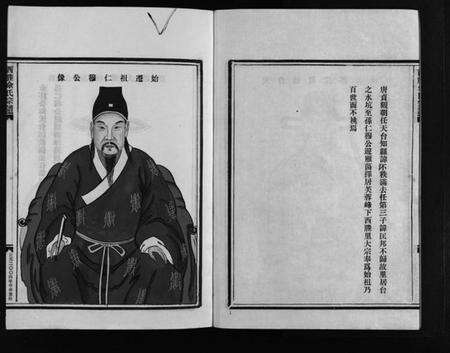 始遷祖仁穆公像
唐貞觀朝任天台知縣諱怀秩滿去任第三子諱匡邦不歸故里居台
之水坑至孫仁穆公遊雁蕩擇居芙蓉峰下西塍里大宗奉爲始祖乃
百世而不祧焉